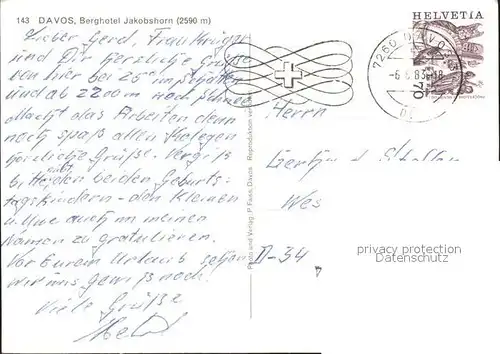 143 DAVOS, Berghotel Jakobshorn (2590 m)
HELVETIA
7260 DAVOS
-6. 6. 83-18
70
Lieber Gerd, Frau Krüger
und Dir herzliche Grüße
von hier bei 26° im Schatten
und ab 2200 m noch Schnee
Macht das Arbeiten denn
noch spaß allen Kollegen
herzliche Grüße. Vergiß
bitte nicht den beiden Geburts-
tagskindern - den Kleinen
u. Uwe auch in meinen
Namen zu gratulieren.
Vor Eurem Urlaub sehen
wir uns gewiß noch.
Viele Grüße
Photo und Verlag: P. Faiss, Davos Reproduktion ver
Herrn
Wes
D-34
privacy protection
Datenschutz